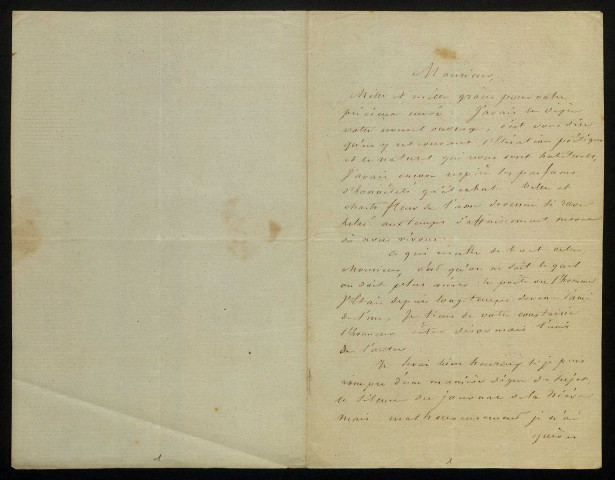 Monsieur,
Mille et mille grâces pour votre
précieux envoi. J'avais su
votre nouvel ouvrage, c'est vous dire
qu'en y retrouvant l'élévation poétique
et le naturel qui vous sont habituels,
J'avais encore respiré les parfums
d'honnêteté qu'il exhale. Belle et
chaste fleur de l'âme devenue si rare
hélas! aux temps d'affairement
où nous vivons.
Ce qui résulte de tout cela
Monsieur, c'est qu'on ne sait lequel
on doit plus aimer le poète ou l'homme
J'étais depuis longtemps devenu l'ami
de l'un, Je tiens de votre courtoisie
l'honneur d'être désormais l'ami
de l'autre.
Je serai bien heureux si je puis
rompre d'une manière digne du sujet,
le silence du journal de la Nièvre
Mais malheureusement je n'ai
guères
1 1